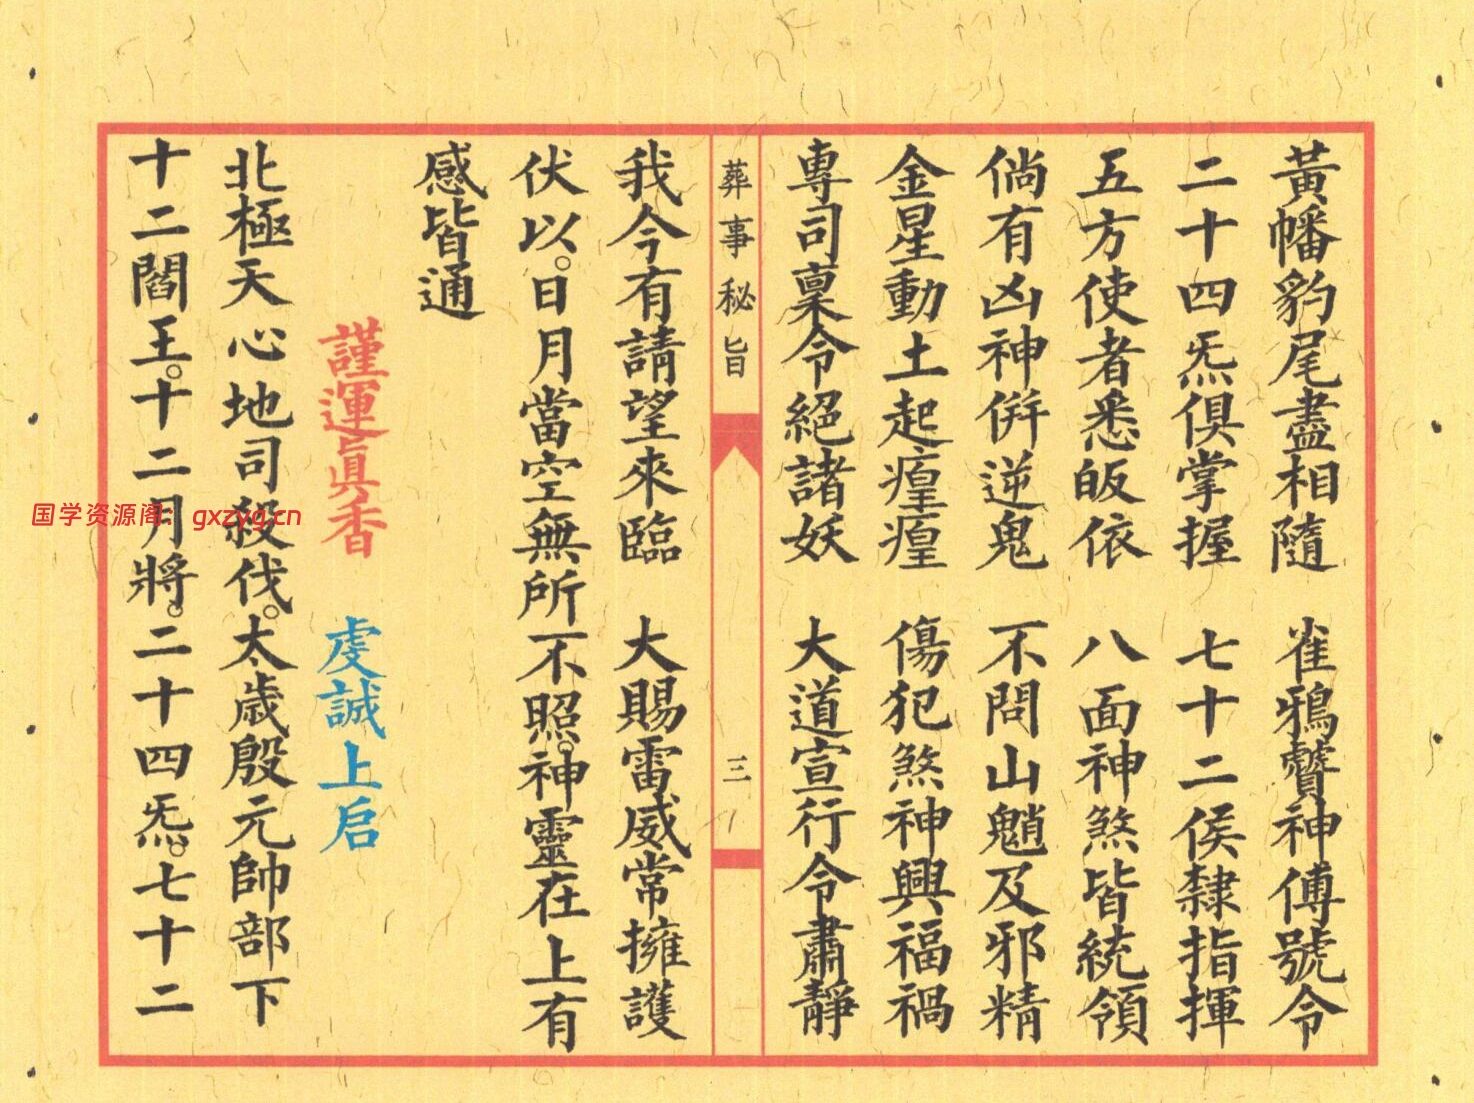 黃幡豹尾盡相隨　雀鴉贊神傅號令
二十四炁俱掌握　七十二侯隸指揮
五方使者悉皈依　八面神煞皆統領
倘有凶神併逆鬼　不問山魈及邪精
金星動土起瘟瘴　傷犯煞神興福禍
專司稟令絕諸妖　大道宣行令肅靜
我今有請望來臨　大賜雷威常擁護
葬事秘旨
三
伏以。日月當空無所不照。神靈在上有
感皆通
謹運眞香　虔誠上启
北極天心地司殺伐。太歲殷元帥部下
十二閻王。十二月將。二十四炁。七十二
国学资源阁：gxzyg.cn